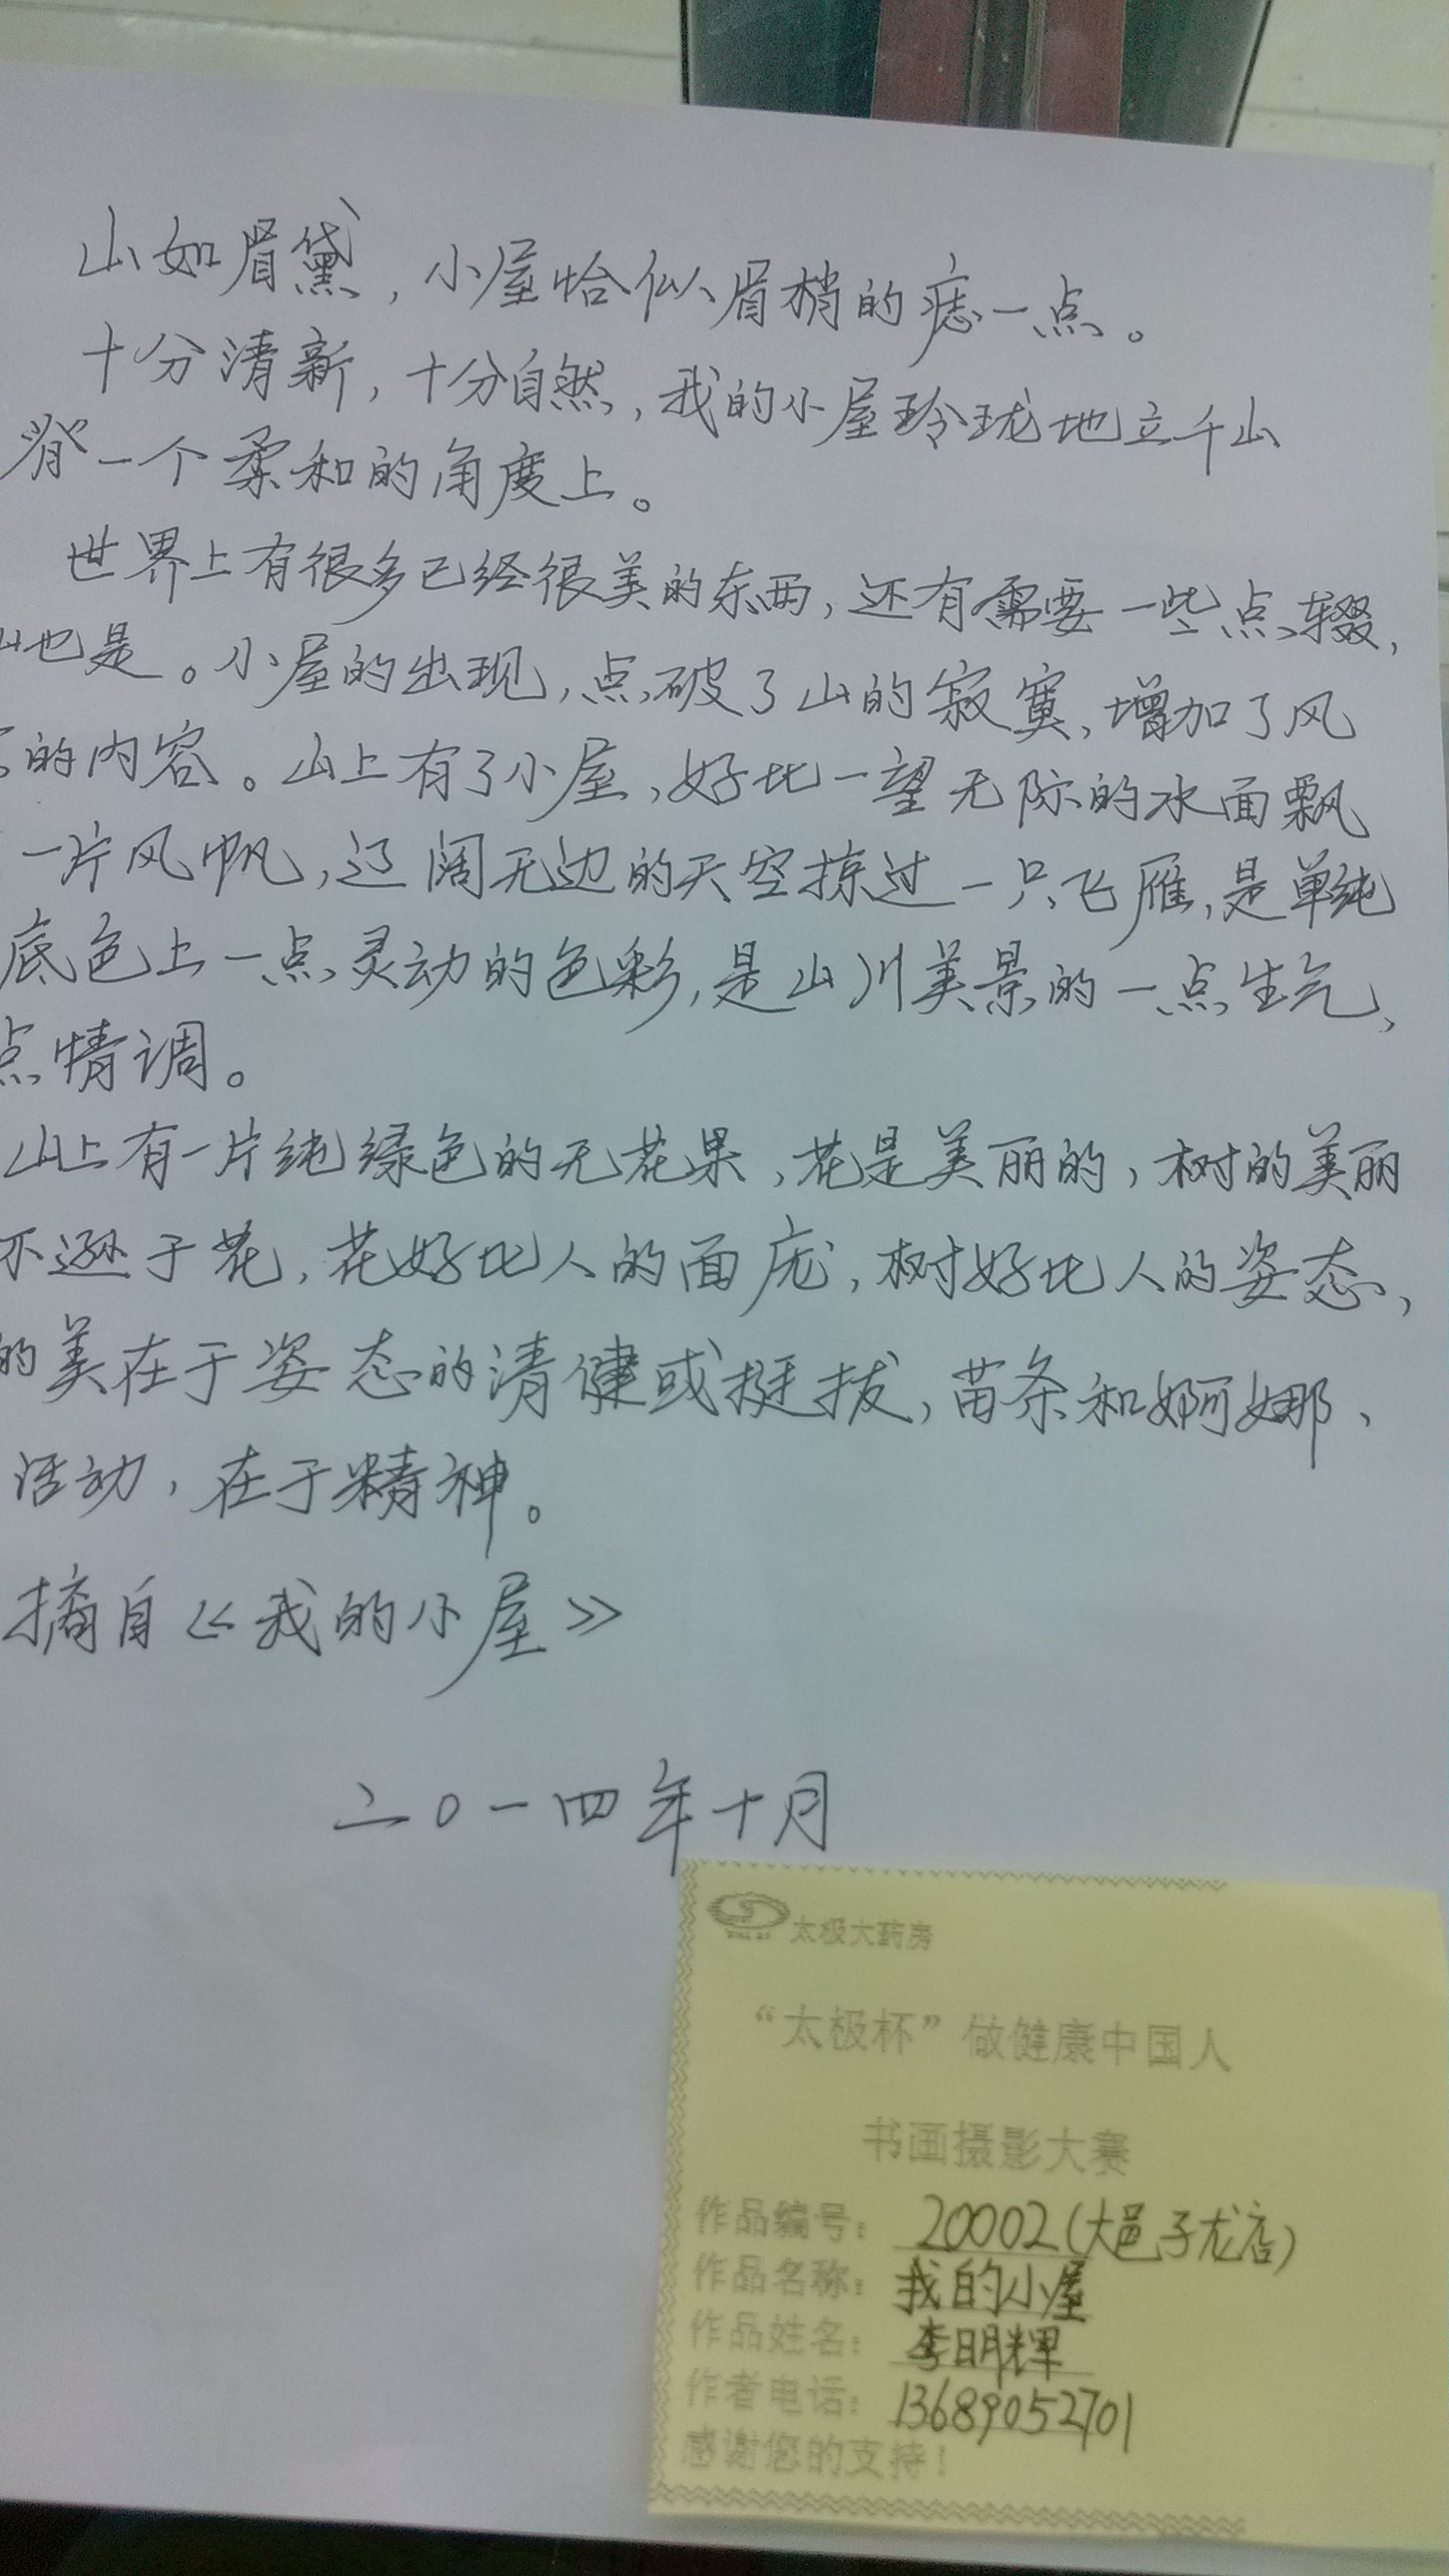 山如眉黛，小屋恰似眉梢的痣一点。
十分清新，十分自然，我的小屋玲珑地立于山
脊一个柔和的角度上。
世界上有很多已经很美的东西，还有需要一些点缀，
山也是。小屋的出现，点破了山的寂寞，增加了风
的内容。山上有了小屋，好比一望无际的水面飘
一片风帆，辽阔无边的天空掠过一只飞雁，是单纯
底色上一点灵动的色彩，是山川美景的一点生气、
点情调。
山上有一片纯绿色的无花果，花是美丽的，树的美丽
不逊于花，花好比人的面庞，树好比人的姿态，
的美在于姿态的清健或挺拔，苗条和婀娜、
活动，在于精神。
摘自《我的小屋》
二〇一四年十月
太极大药房
“太极杯”做健康中国人
书画摄影大赛
作品编号：20002（大邑子龙店）
作品名称：我的小屋
作品姓名：李明辉
作者电话：13689052701
感谢您的支持！